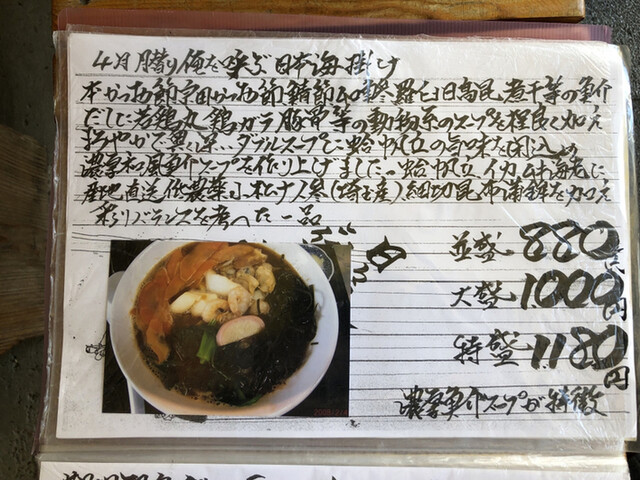 4月 限り俺を呼ぶ 日本海 掛け
本かつお節 宗田かつお節 鯖節 羅臼 日高昆 煮干等の魚介
だしに 若鶏 丸 鶏ガラ 豚骨 等の動物系のスープを程良く加え
まろやかで奥深 ダブルスープに 蛤 帆立の旨味を閉込め
濃厚和風魚介スープを作り上げました 蛤 帆立 イカ ムキ海老に
産地直送 低農薬 小松ナ 人参(埼玉産)細切昆布 蒲鉾を加え
彩りバランスを考へた一品
並盛 880円
大盛 1000円
特盛 1180円
濃厚魚介スープが特徴